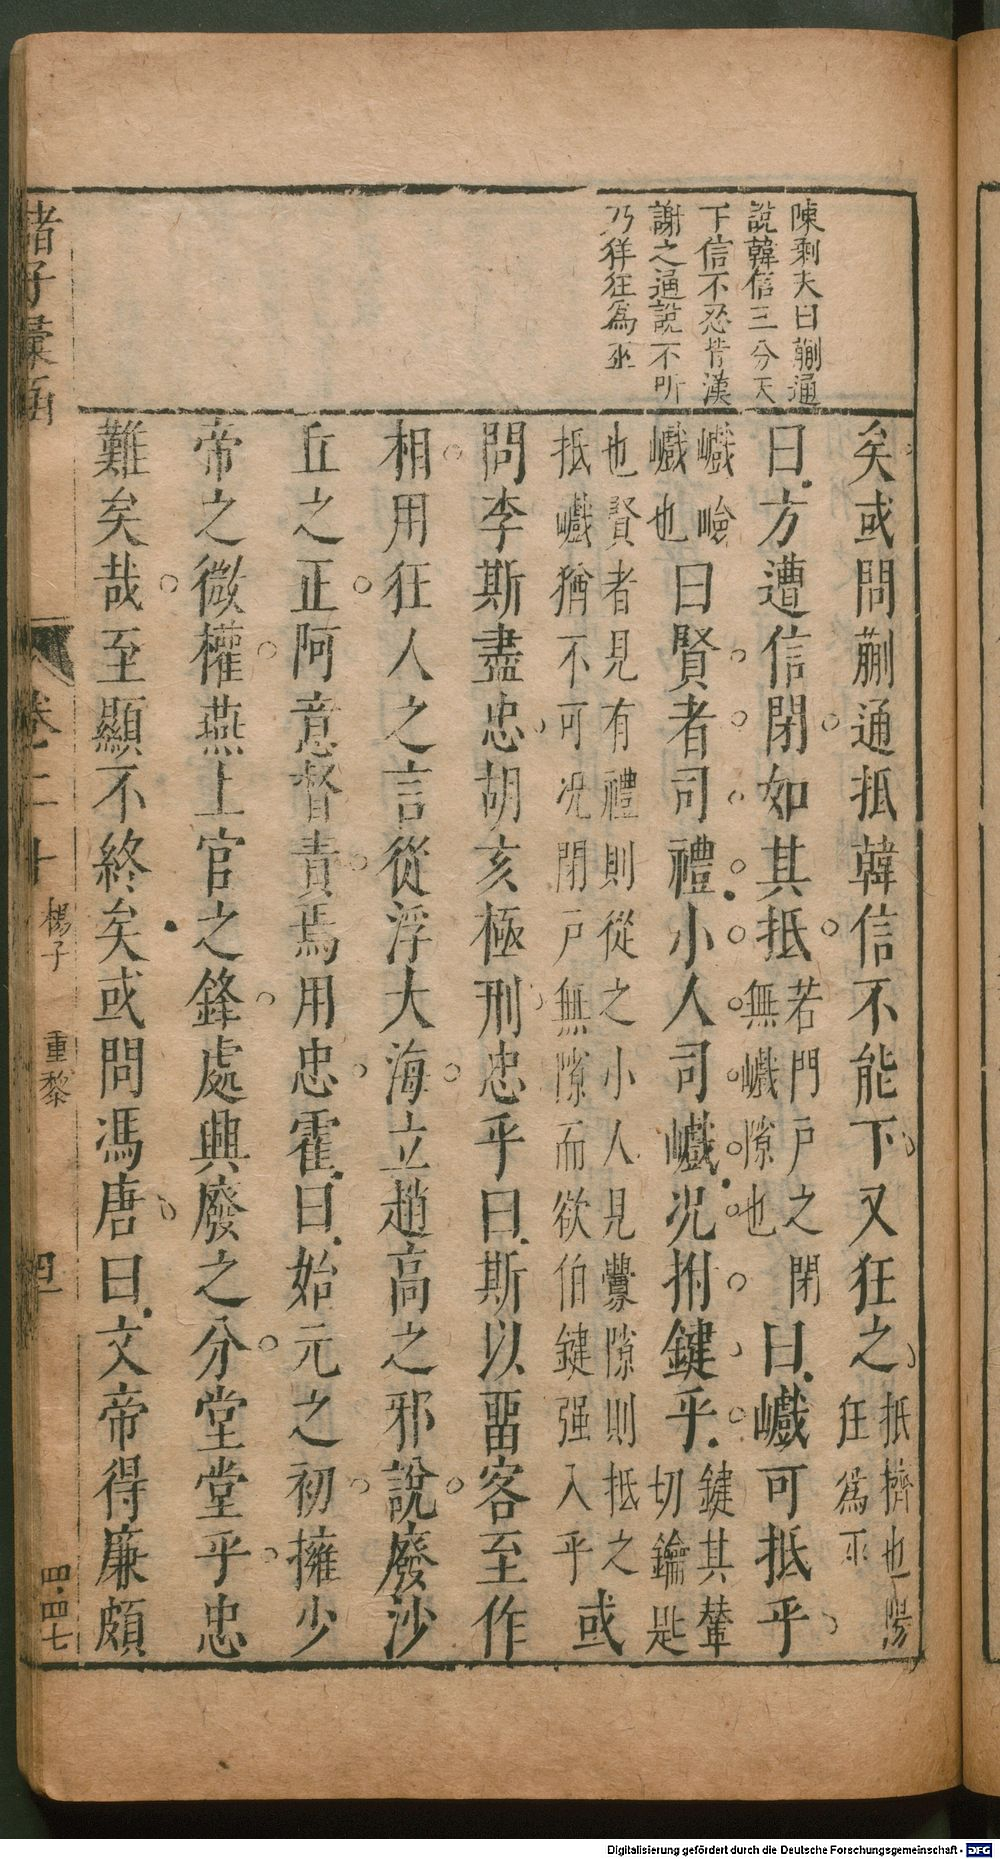 陳剩夫曰蒯通
說韓信三分天
下信不忍背漢
謝之通說不听
乃佯狂爲巫
矣或問蒯通抵韓信不能下又狂之
抵擠也陽
狂爲巫
曰方遭信閉如其抵
若門戸之閉
無巇隙也
曰巇可抵乎
巇嶮
巇也
曰賢者司禮小人司巇况拊鍵乎
鍵其輦
切鑰匙
也賢者見有禮則從之小人見釁隙則抵之
抵巇猶不可况閉戸無隙而欲伯鍵强入乎
或
問李斯盡忠胡亥極刑忠乎曰斯以畱客至作
相用狂人之言從浮大海立趙高之邪說廢沙
丘之正阿意督責焉用忠霍曰始元之初擁少
帝之微權燕上官之鋒處興廢之分堂堂乎忠
難矣哉至顯不終矣或問馮唐曰文帝得廉頗
諸子彙函
卷二十
楊子
重黎
四
四四七
Digitalisierung gefördert durch die Deutsche Forschungsgemeinschaft - DFG